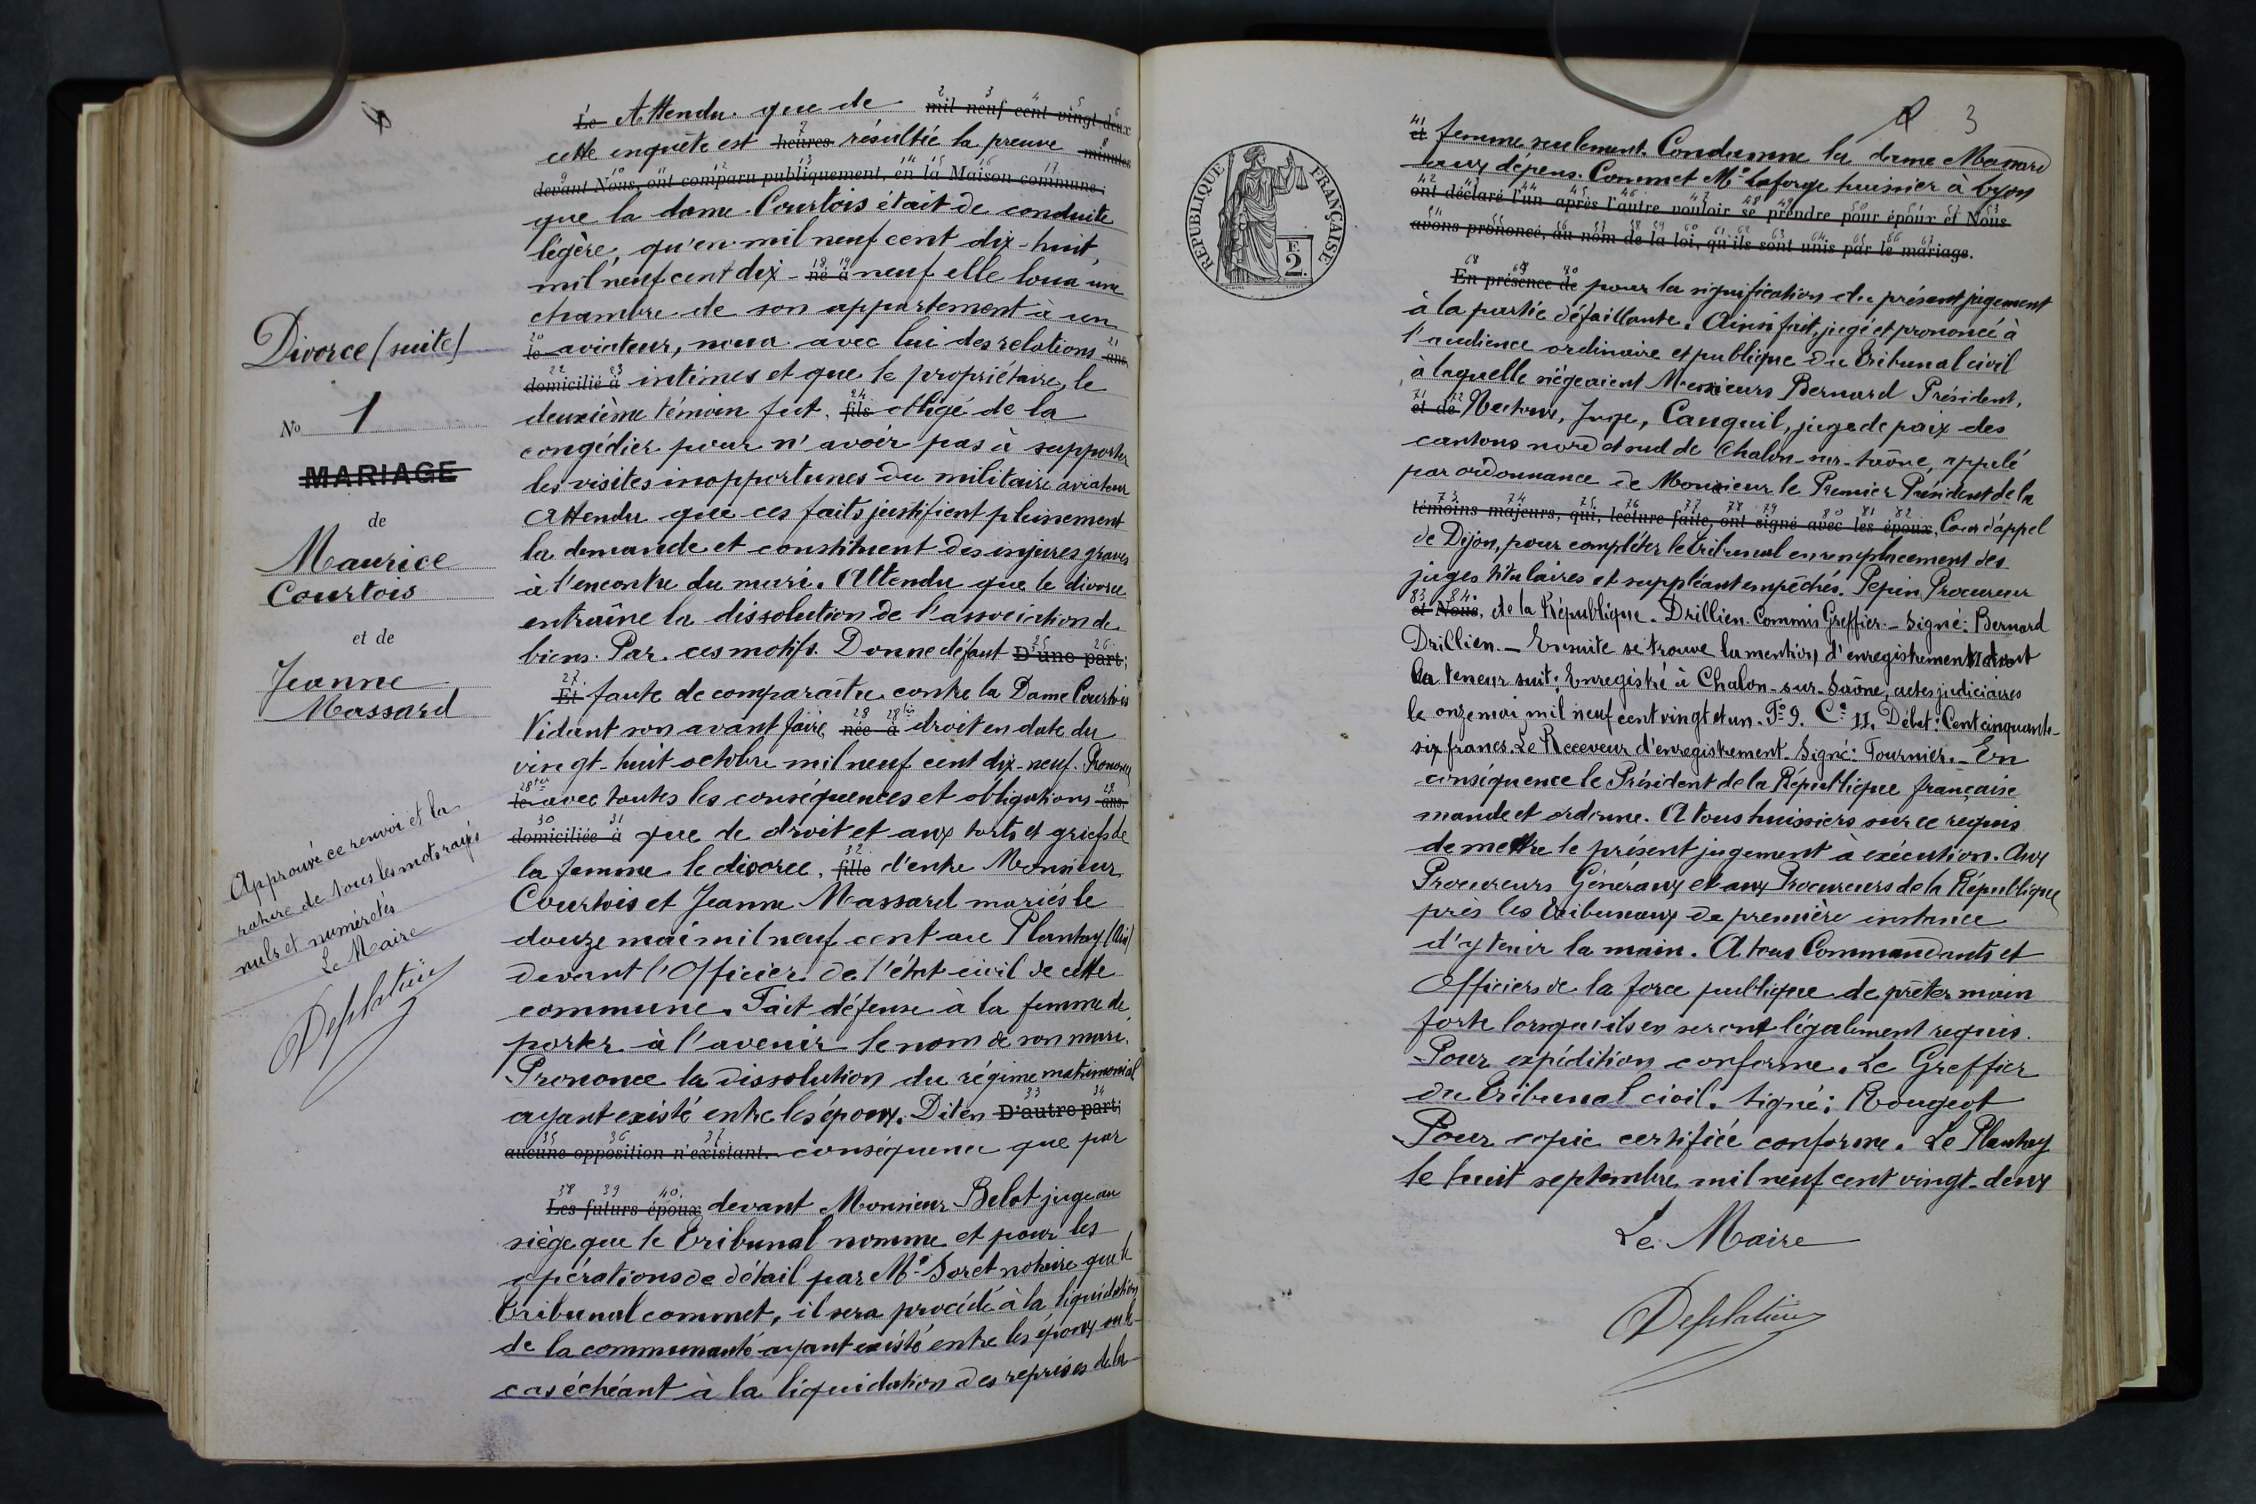 Divorce (suite)
No 1
MARIAGE
de
Maurice
Courtois
et de
Jeanne
Massard
Approuvé ce renvoi et la
rature de tous les mots rayés
nuls et numérotés
Le Maire
Le Attendu que de mil neuf cent vingt-deux
cette enquête est heures résultée la preuve minutes
devant Nous, ont comparu publiquement, en la Maison commune:
que la dame Courtois était de conduite
légère, qu'en mil neuf cent dix-huit,
mil neuf cent dix- né à neuf elle loua une
chambre de son appartement à un
le aviateur, noua avec lui des relations ans,
domicilié à intimes et que le propriétaire, le
deuxième témoin fut fils obligé de la
congédier pour n'avoir pas à supporter
les visites inopportunes du militaire aviateur
Attendu que ces faits justifient pleinement
la demande et constituent des injures graves
à l'encontre du mari. Attendu que le divorce
entraîne la dissolution de l'association de
biens. Par ces motifs. Donne défaut D'une part;
Et faute de comparaître contre la Dame Courtois
Vidant son avant faire née à droit en date du
vingt-huit octobre mil neuf cent dix-neuf. Prononce
le avec toutes les conséquences et obligations ans,
domiciliée à que de droit et aux torts et griefs de
la femme le divorce, fille d'entre Monsieur
Courtois et Jeanne Massard mariés le
douze mai mil neuf cent au Plantay (Ain)
devant l'Officier de l'état civil de cette
commune. Fait défense à la femme de
porter à l'avenir le nom de son mari.
Prononce la dissolution du régime matrimonial
ayant existé entre les époux. Dit en D'autre part;
aucune opposition n'existant. conséquence que par
Les futurs époux devant Monsieur Belot juge au
siège que le Tribunal nomme et pour les
opérations de détail par Me Soret notaire que le
Tribunal commet, il sera procédé à la liquidation
de la communauté ayant existé entre les époux ou le
cas échéant à la liquidation des reprises de la
3
RÉPUBLIQUE FRANÇAISE
E
2.
et femme seulement. Condamne la dame Massard
aux dépens. Commet Me Laforge huissier à Lyon
ont déclaré l'un après l'autre vouloir se prendre pour époux et Nous
avons prononcé, au nom de la loi, qu'ils sont unis par le mariage.
En présence de pour la signification du présent jugement
à la partie défaillante. Ainsi fait, jugé et prononcé à
l'audience ordinaire et publique du Tribunal civil
à laquelle siégeaient Messieurs Bernard Président,
et de Nectoux, Juge, Cauquil, juge de paix des
cantons nord et sud de Chalon-sur-Saône, appelé
par ordonnance de Monsieur le Premier Président de la
témoins majeurs, qui, lecture faite, ont signé avec les époux Cour d'appel
de Dijon, pour compléter le tribunal en remplacement des
juges titulaires et suppléant empêchés. Pepin Procureur
et Nous. de la République. Drillien Commis Greffier.- Signé: Bernard
Drillien.- Ensuite se trouve la mention d'enregistrement dont
la teneur suit: Enregistré à Chalon-sur-Saône, actes judiciaires
le onze mai mil neuf cent vingt et un. Fo 9. Ce 11. Débet: Cent cinquante-
six francs. Le Receveur d'enregistrement. Signé: Tournier.- En
conséquence le Président de la République française
mande et ordonne. A tous huissiers sur ce requis
de mettre le présent jugement à exécution. Aux
Procureurs Généraux et aux Procureurs de la République
près les Tribunaux de première instance
d'y tenir la main. A tous Commandants et
Officiers de la force publique de prêter main
forte lorsqu'ils en seront légalement requis.
Pour expédition conforme. Le Greffier
du Tribunal civil. Signé: Rougeot
Pour copie certifiée conforme. Le Plantay
le huit septembre mil neuf cent vingt-deux
Le Maire